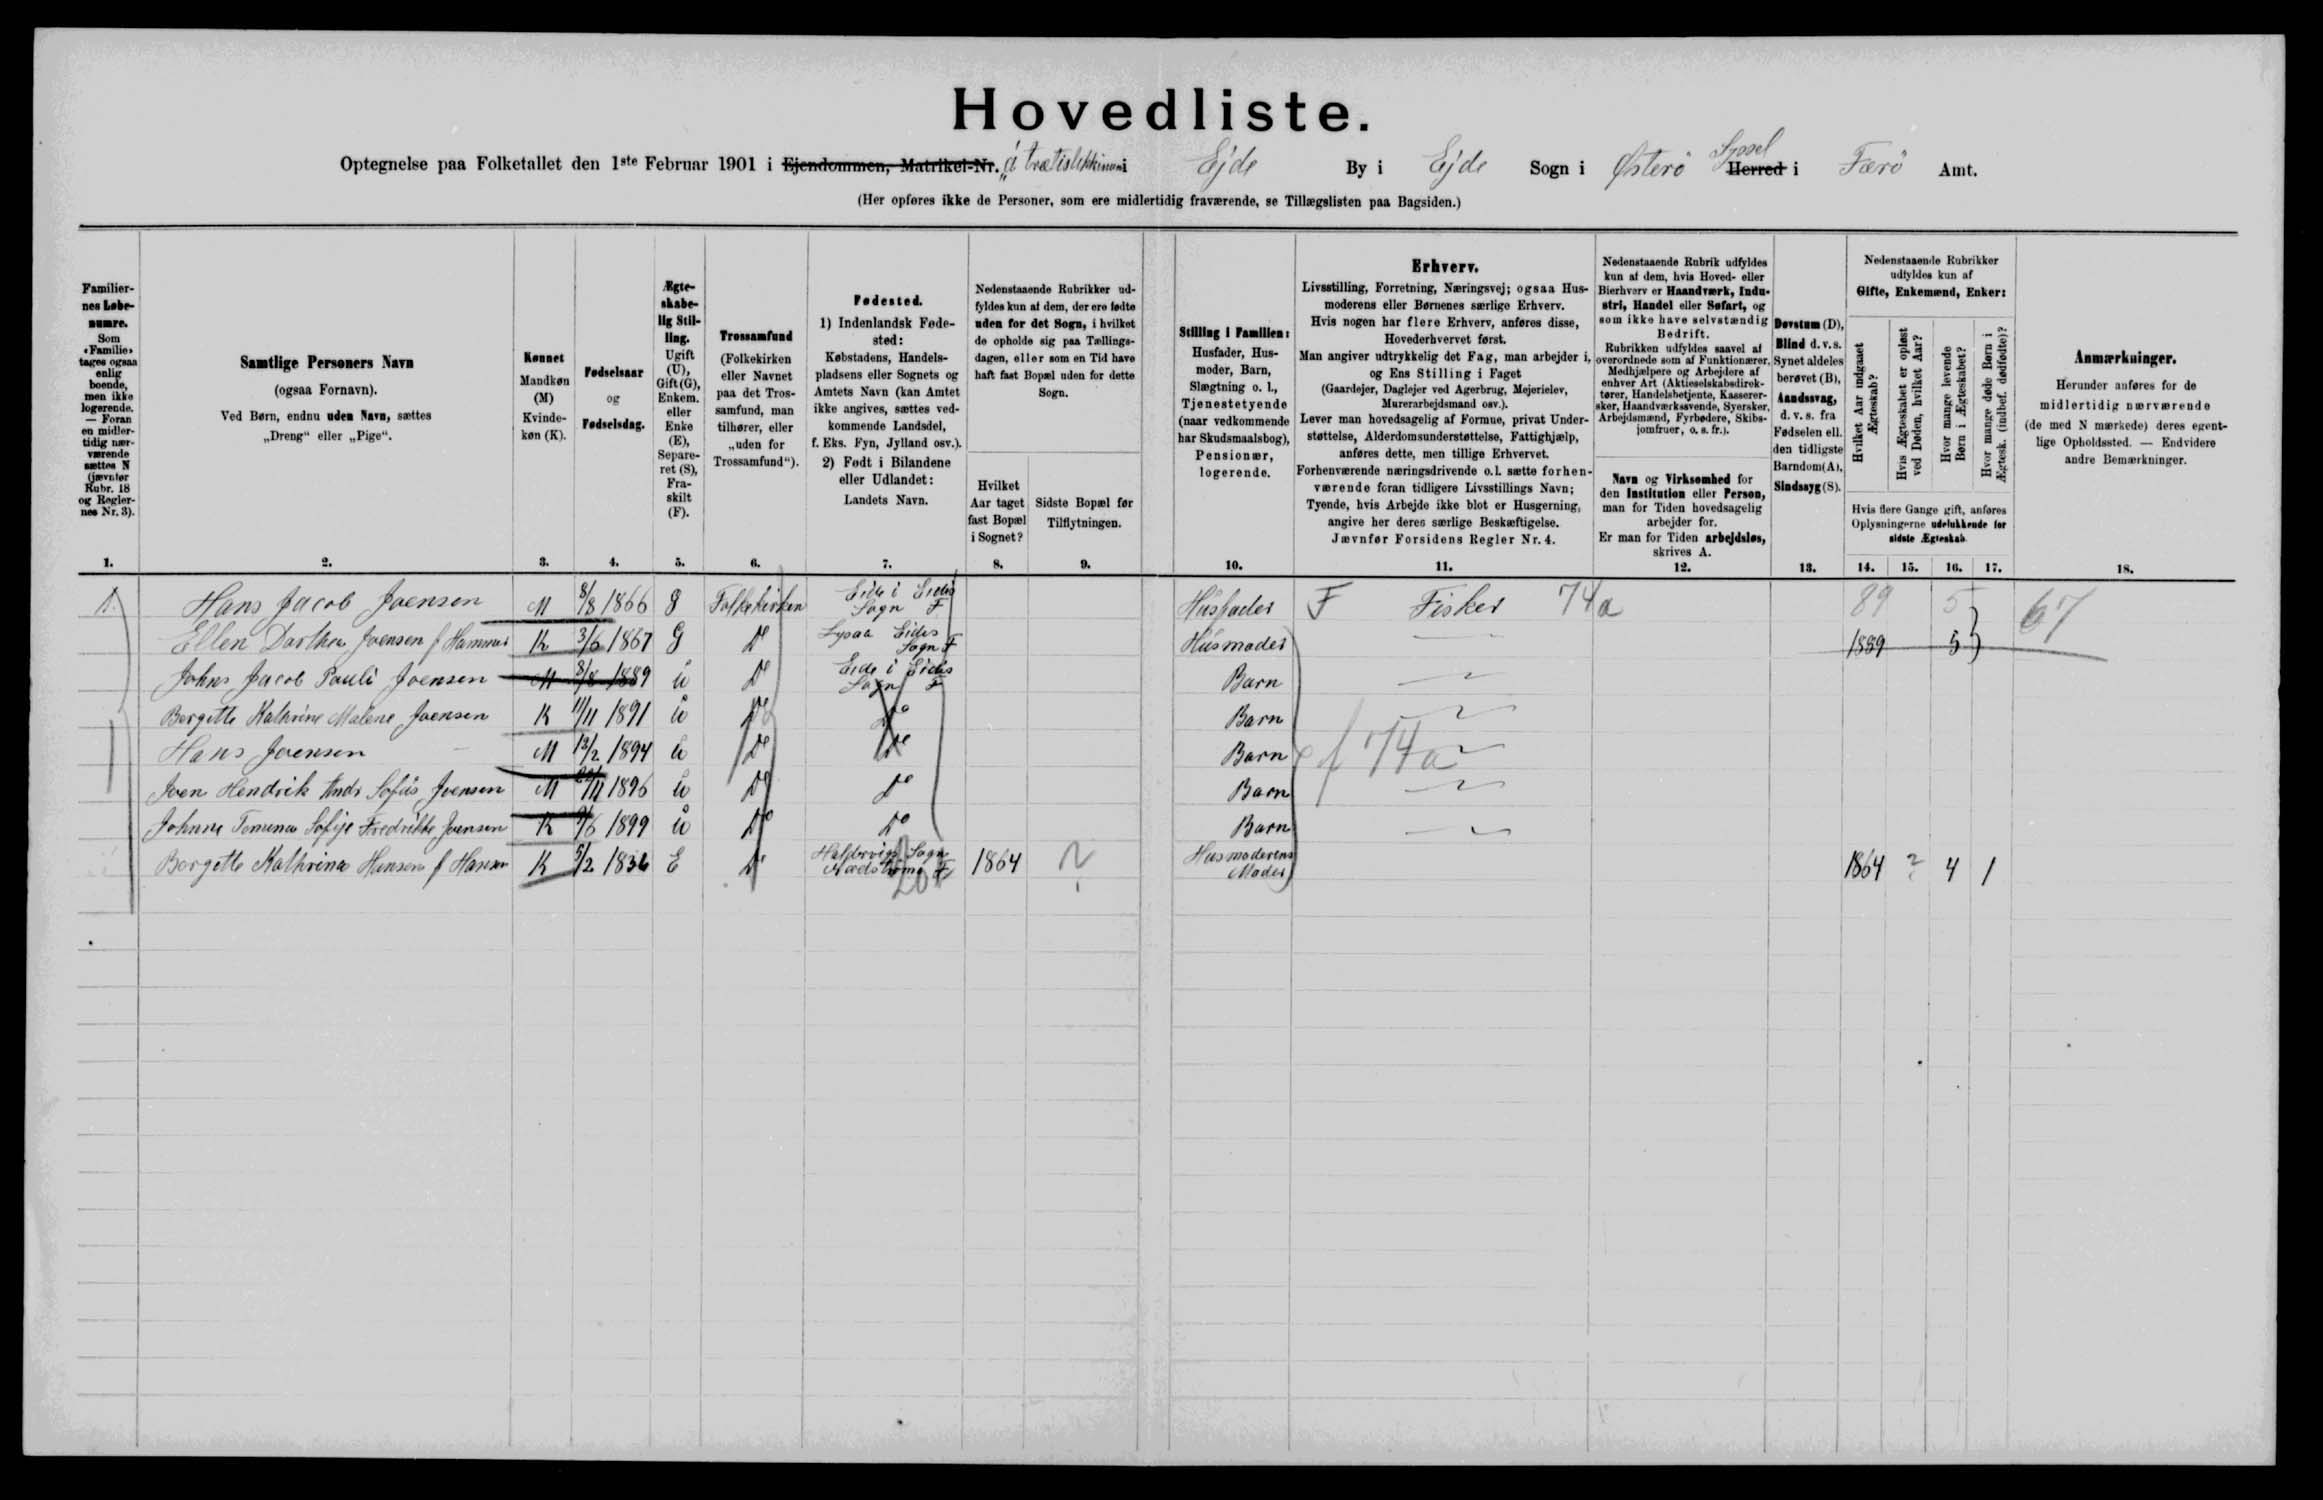 Hovedliste.
Optegnelse paa Folketallet den 1ste Februar 1901 i Ejendommen, Matrikel-Nr. i Ejde By i Ejde Sogn i Østerö Syssel Herred i Færö Amt.
(Her opføres ikke de Personer, som ere midlertidig fraværende, se Tillægslisten paa Bagsiden.)
Familiernes Løbenumre.
Som «Familie» tages ogsaa enlig boende, men ikke logerende. — Foran en midlertidig nærværende sættes N (jævnfør Rubr. 18 og Reglernes Nr. 3).
Samtlige Personers Navn
(ogsaa Fornavn).
Ved Børn, endnu uden Navn, sættes
„Dreng“ eller „Pige“.
Kønnet
Mandkøn (M)
Kvindekøn (K).
Fødselsaar
og
Fødselsdag.
Ægteskabelig Stilling.
Ugift (U), Gift (G), Enkem. eller Enke (E), Separeret (S), Fraskilt (F).
Trossamfund
(Folkekirken eller Navnet paa det Trossamfund, man tilhører, eller „uden for Trossamfund“).
Fødested.
1) Indenlandsk Fødested:
Købstadens, Handelspladsens eller Sognets og Amtets Navn (kan Amtet ikke angives, sættes vedkommende Landsdel, f. Eks. Fyn, Jylland osv.).
2) Født i Bilandene eller Udlandet:
Landets Navn.
Nedenstaaende Rubrikker udfyldes kun af dem, der ere fødte uden for det Sogn, i hvilket de opholde sig paa Tællingsdagen, eller som en Tid have haft fast Bopæl uden for dette Sogn.
Hvilket Aar taget fast Bopæl i Sognet?
Sidste Bopæl før Tilflytningen.
Stilling i Familien:
Husfader, Husmoder, Barn, Slægtning o. l., Tjenestetyende (naar vedkommende har Skudsmaalsbog), Pensionær, logerende.
Erhverv.
Livsstilling, Forretning, Næringsvej; ogsaa Husmoderens eller Børnenes særlige Erhverv.
Hvis nogen har flere Erhverv, anføres disse, Hovederhvervet først.
Man angiver udtrykkelig det Fag, man arbejder i, og Ens Stilling i Faget
(Gaardejer, Daglejer ved Agerbrug, Mejerielev, Murerarbejdsmand osv.).
Lever man hovedsagelig af Formue, privat Understøttelse, Alderdomsunderstøttelse, Fattighjælp, anføres dette, men tillige Erhvervet.
Forhenværende næringsdrivende o. l. sætte forhenværende foran tidligere Livsstillings Navn;
Tyende, hvis Arbejde ikke blot er Husgerning, angive her deres særlige Beskæftigelse.
Jævnfør Forsidens Regler Nr. 4.
Nedenstaaende Rubrik udfyldes kun af dem, hvis Hoved- eller Bierhverv er Haandværk, Industri, Handel eller Søfart, og som ikke have selvstændig Bedrift.
Rubrikken udfyldes saavel af overordnede som af Funktionærer, Medhjælpere og Arbejdere af enhver Art (Aktieselskabsdirektører, Handelsbetjente, Kasserersker, Haandværkssvende, Syersker, Arbejdsmænd, Fyrbødere, Skibsjomfruer, o. s. fr.).
Navn og Virksomhed for den Institution eller Person, man for Tiden hovedsagelig arbejder for.
Er man for Tiden arbejdsløs, skrives A.
Døvstum (D), Blind d. v. s. Synet aldeles berøvet (B), Aandssvag, d. v. s. fra Fødselen ell. den tidligste Barndom (A), Sindssyg (S).
Nedenstaaende Rubrikker udfyldes kun af
Gifte, Enkemænd, Enker:
Hvilket Aar indgaaet Ægteskab?
Hvis Ægteskabet er opløst ved Døden, hvilket Aar?
Hvor mange levende Børn i Ægteskabet?
Hvor mange døde Børn i Ægtesk. (indbef. dødfødte)?
Hvis flere Gange gift, anføres Oplysningerne udelukkende for sidste Ægteskab.
Anmærkninger.
Herunder anføres for de midlertidig nærværende (de med N mærkede) deres egentlige Opholdssted. — Endvidere andre Bemærkninger.
1. 2. 3. 4. 5. 6. 7. 8. 9. 10. 11. 12. 13. 14. 15. 16. 17. 18.
1. Hans Jacob Joensen M 8/8 1866 G Folkekirken Eide i Eides Sogn F Husfader F Fisker 74a 89 5 67
Ellen Darthea Joensen f Hammer K 3/6 1867 G Do Eides Sogn F Husmoder 1889 5
Johns Jacob Pauli Joensen M 8/8 1889 U Do Eide i Eides Sogn F Barn
Bergitte Kathrine Malene Joensen K 11/11 1891 U Do Do Barn
Hans Joensen M 13/2 1894 U Do Do Barn f 74a
Joen Hendrik Andr Sofus Joensen M /11 1896 U Do Do Barn
Johnne Tomena Sofije Fredrikke Joensen K /6 1899 U Do Do Barn
Bergitte Kathrina Hansen f Hansen K 5/2 1836 E Do Haldervigs Sogn F 1864 ? Husmoderens Moder 1864 ? 4 1